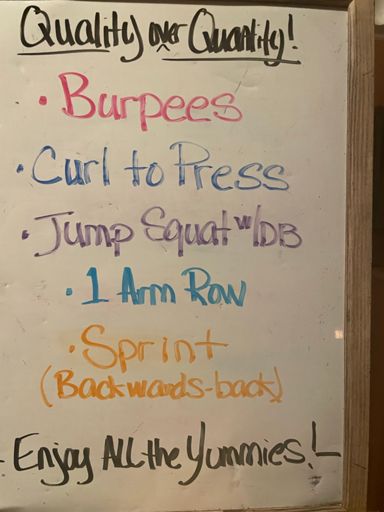 Quality over Quantity!
• Burpees
• Curl to Press
• Jump Squat w/DB
• 1 Arm Row
• Sprint
(Backwards-back)
Enjoy All the Yummies!